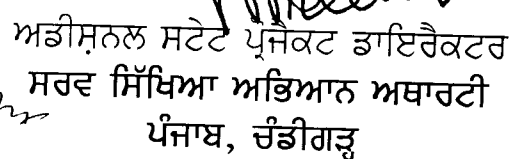 ਅਡੀਸ਼ਨਲ ਸਟੇਟ ਪ੍ਰਜੈਕਟ ਡਾਇਰੈਕਟਰ
ਸਰਵ ਸਿੱਖਿਆ ਅਭਿਆਨ ਅਥਾਰਟੀ
ਪੰਜਾਬ, ਚੰਡੀਗੜ੍ਹ